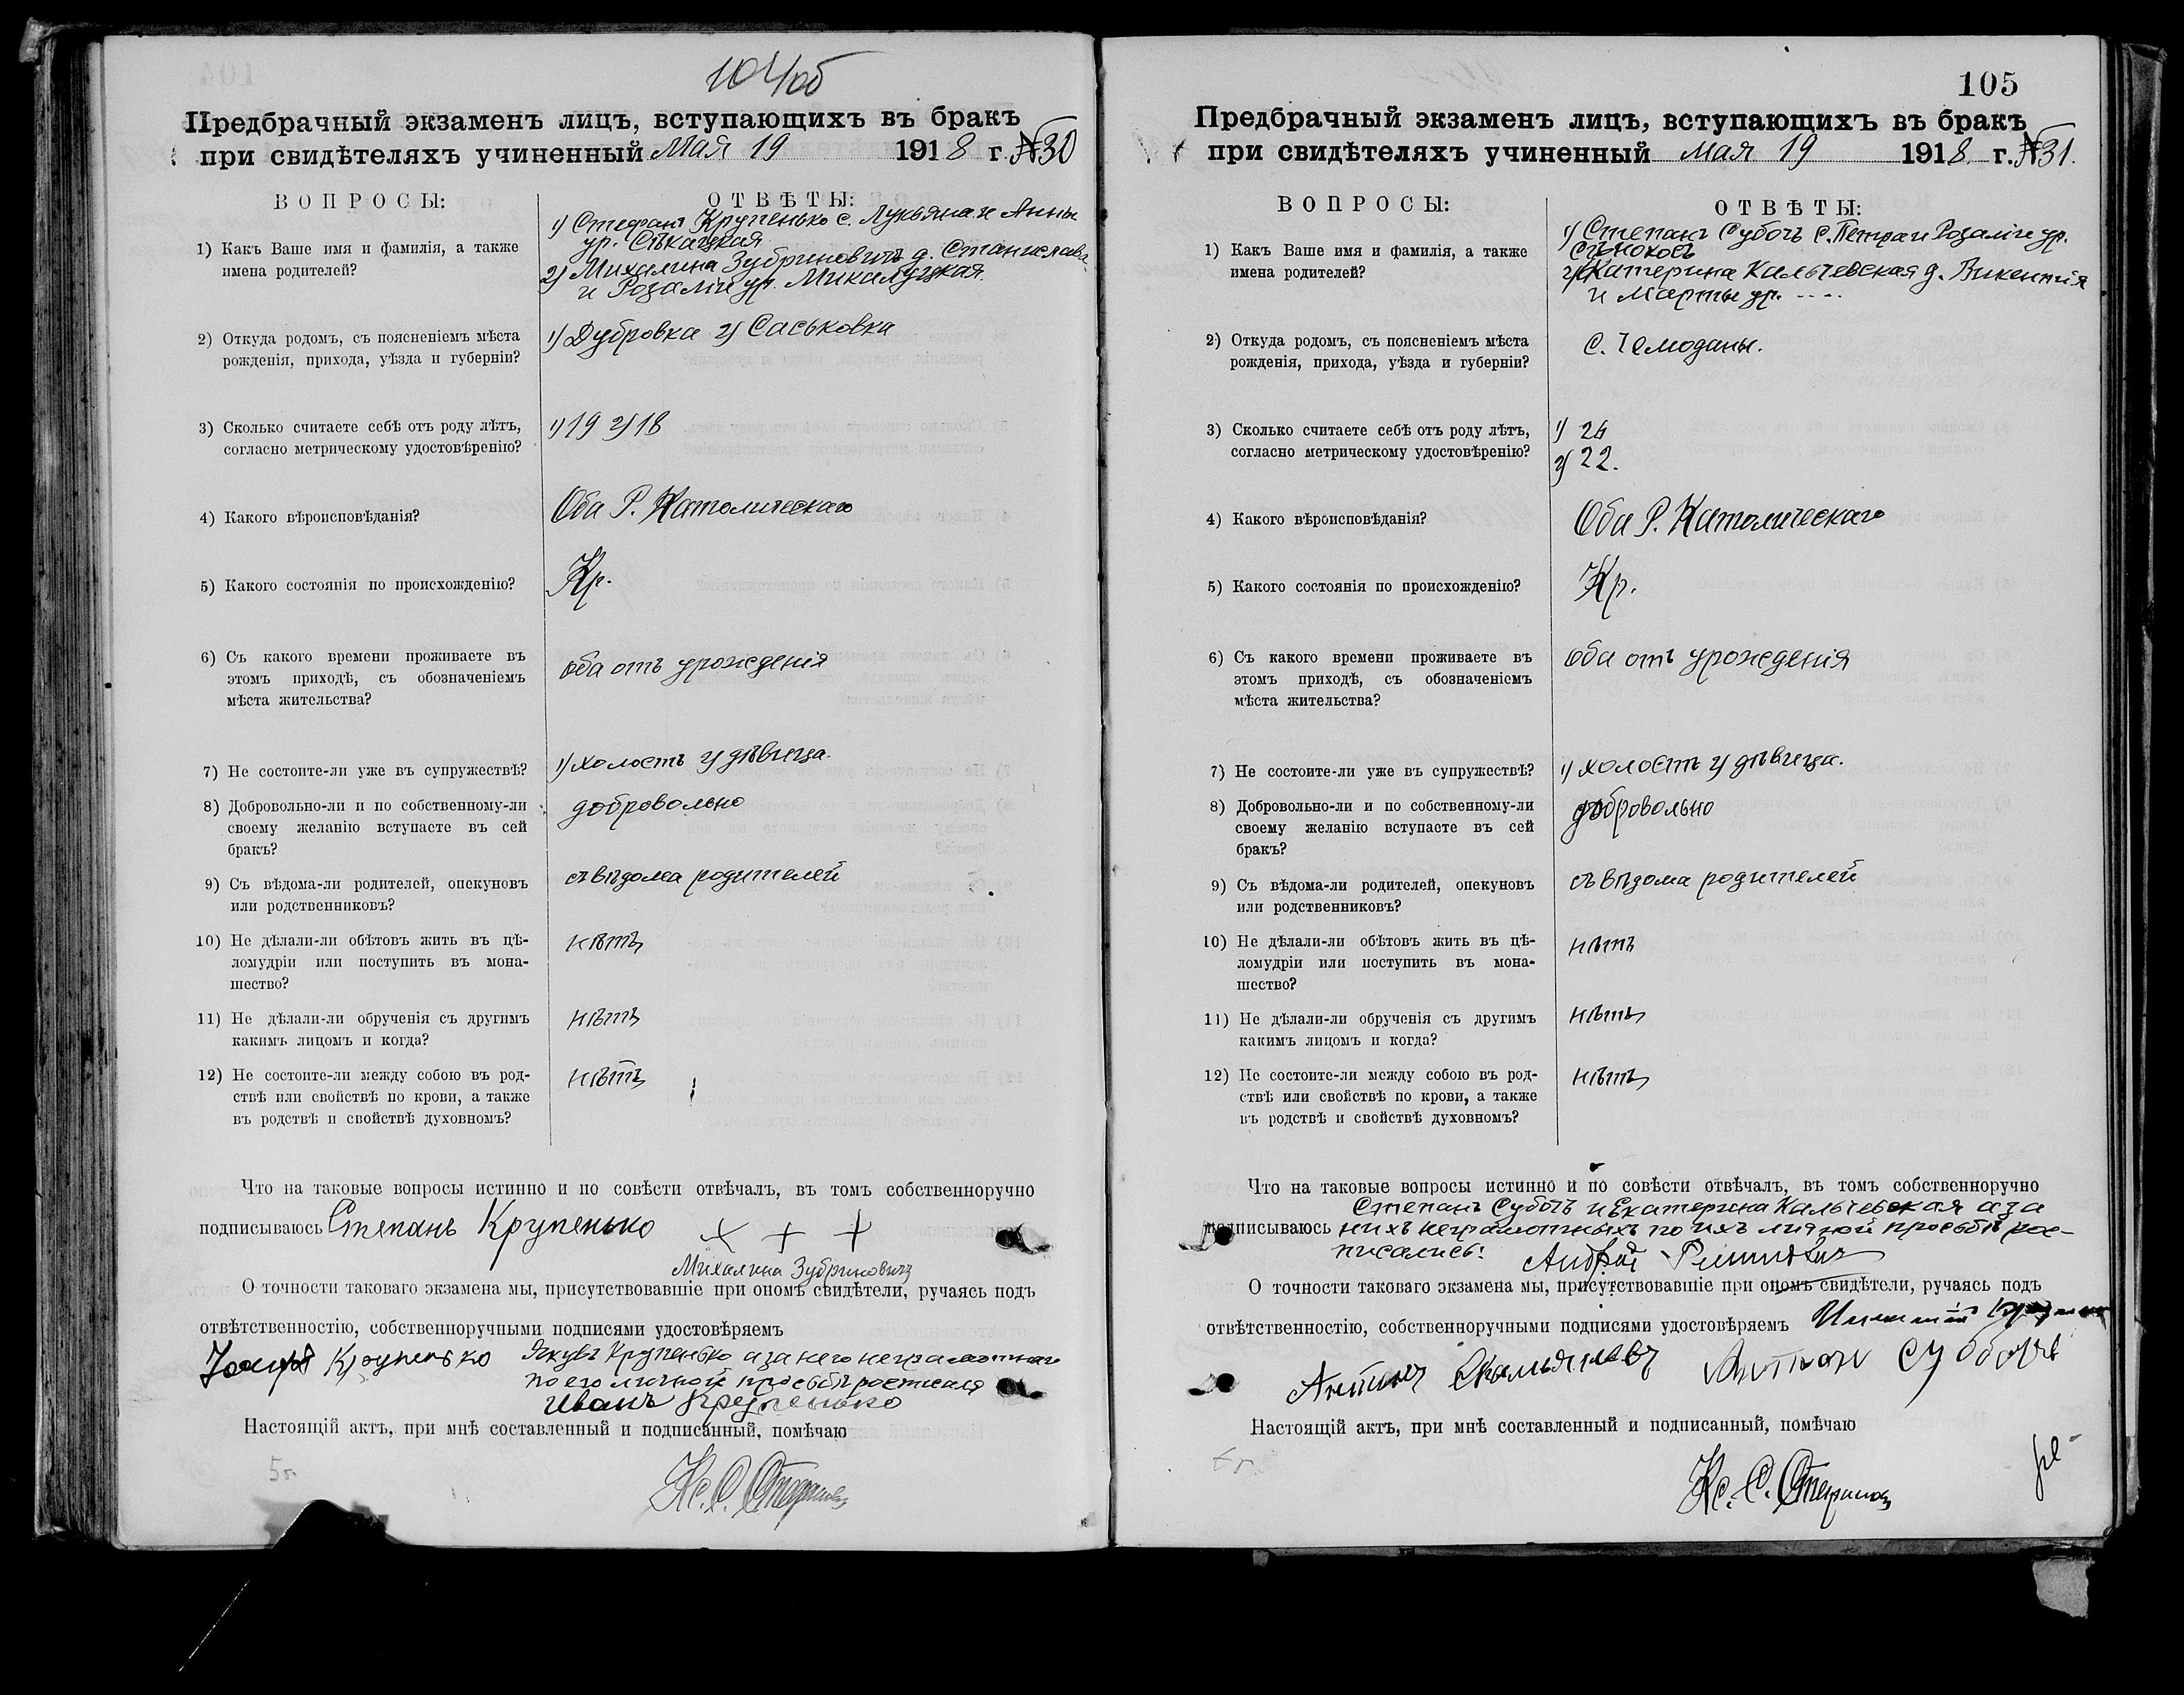 104об
Предбрачный экзаменъ лицъ, вступающихъ въ бракъ
при свидѣтеляхъ учиненный Мая 19 1918 г. №30
ВОПРОСЫ:
ОТВѢТЫ:
1) Какъ Ваше имя и фамилія, а также
имена родителей?
1) Стефанъ Крупенько с. Лукьяна и Анны
ур.
2) Михалина Зубриновичъ д. Станислава
и Розаліи ур. Микалуцкая.
2) Откуда родомъ, съ поясненіемъ мѣста
рожденія, прихода, уѣзда и губерніи?
1) Дубровка 2) Саськовка
3) Сколько считаете себѣ отъ роду лѣтъ,
согласно метрическому удостовѣренію?
1) 19 2) 18
4) Какого вѣроисповѣданія?
Оба Р. Католическаго
5) Какого состоянія по происхожденію?
Кр.
6) Съ какого времени проживаете въ
этомъ приходѣ, съ обозначеніемъ
мѣста жительства?
оба отъ урожденія
7) Не состоите-ли уже въ супружествѣ?
1) холостъ 2) дѣвица.
8) Добровольно-ли и по собственному-ли
своему желанію вступаете въ сей
бракъ?
добровольно
9) Съ вѣдома-ли родителей, опекуновъ
или родственниковъ?
съ вѣдома родителей
10) Не дѣлали-ли обѣтовъ жить въ цѣ-
ломудріи или поступить въ мона-
шество?
нѣтъ
11) Не дѣлали-ли обрученія съ другимъ
какимъ лицомъ и когда?
нѣтъ
12) Не состоите-ли между собою въ род-
ствѣ или свойствѣ по крови, а также
въ родствѣ и свойствѣ духовномъ?
нѣтъ
Что на таковые вопросы истинно и по совѣсти отвѣчалъ, въ томъ собственноручно
подписываюсь Степанъ Крупенько + + +
Михалина Зубриновичъ
О точности таковаго экзамена мы, присутствовавшіе при ономъ свидѣтели, ручаясь подъ
отвѣтственностію, собственноручными подписями удостовѣряемъ
Крупенько Якувъ Крупенько а за него неграмотнаго
по его личной просьбѣ росписался
Иванъ Крупенько
Настоящій актъ, при мнѣ составленный и подписанный, помѣчаю
5г.
Кс. С.
105
Предбрачный экзаменъ лицъ, вступающихъ въ бракъ
при свидѣтеляхъ учиненный мая 19 1918 г. №31.
ВОПРОСЫ:
ОТВѢТЫ:
1) Какъ Ваше имя и фамилія, а также
имена родителей?
1) Степанъ Субочъ с. Петра и Розаліи ур.
2) Катерина Кальчевская д. Викентія
и Марты ур. ....
2) Откуда родомъ, съ поясненіемъ мѣста
рожденія, прихода, уѣзда и губерніи?
с. Чемоданы.
3) Сколько считаете себѣ отъ роду лѣтъ,
согласно метрическому удостовѣренію?
1) 24
2) 22.
4) Какого вѣроисповѣданія?
Оба Р. Католическаго
5) Какого состоянія по происхожденію?
Кр.
6) Съ какого времени проживаете въ
этомъ приходѣ, съ обозначеніемъ
мѣста жительства?
оба отъ урожденія
7) Не состоите-ли уже въ супружествѣ?
1) холостъ 2) дѣвица.
8) Добровольно-ли и по собственному-ли
своему желанію вступаете въ сей
бракъ?
добровольно
9) Съ вѣдома-ли родителей, опекуновъ
или родственниковъ?
съ вѣдома родителей
10) Не дѣлали-ли обѣтовъ жить въ цѣ-
ломудріи или поступить въ мона-
шество?
нѣтъ
11) Не дѣлали-ли обрученія съ другимъ
какимъ лицомъ и когда?
нѣтъ
12) Не состоите-ли между собою въ род-
ствѣ или свойствѣ по крови, а также
въ родствѣ и свойствѣ духовномъ?
нѣтъ
Что на таковые вопросы истинно и по совѣсти отвѣчалъ, въ томъ собственноручно
Степанъ Субочъ и Екатерина Кальчевская а за
подписываюсь нихъ неграмотныхъ по ихъ личной просьбѣ рос-
писались:
О точности таковаго экзамена мы, присутствовавшіе при ономъ свидѣтели, ручаясь подъ
отвѣтственностію, собственноручными подписями удостовѣряемъ
Антонъ
Настоящій актъ, при мнѣ составленный и подписанный, помѣчаю
Кс. С.